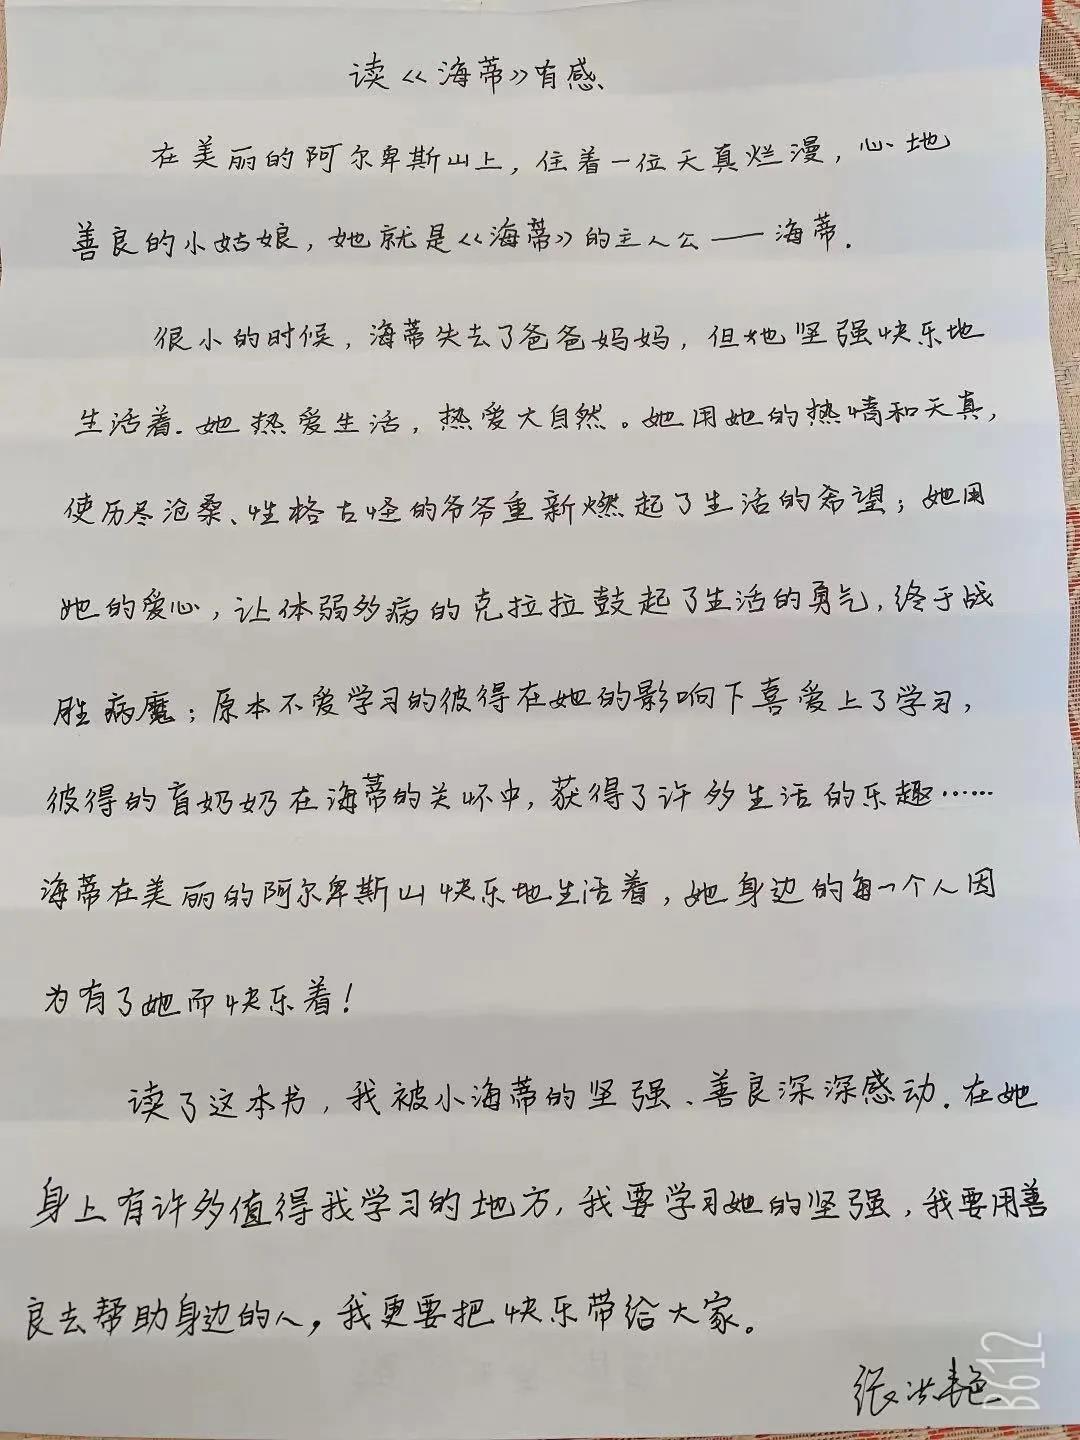 读《海蒂》有感
在美丽的阿尔卑斯山上，住着一位天真烂漫，心地
善良的小姑娘，她就是《海蒂》的主人公——海蒂．
很小的时候，海蒂失去了爸爸妈妈，但她坚强快乐地
生活着．她热爱生活，热爱大自然。她用她的热情和天真，
使历尽沧桑、性格古怪的爷爷重新燃起了生活的希望；她用
她的爱心，让体弱多病的克拉拉鼓起了生活的勇气，终于战
胜病魔；原本不爱学习的彼得在她的影响下喜爱上了学习，
彼得的盲奶奶在海蒂的关怀中，获得了许多生活的乐趣……
海蒂在美丽的阿尔卑斯山快乐地生活着，她身边的每一个人因
为有了她而快乐着！
读了这本书，我被小海蒂的坚强、善良深深感动．在她
身上有许多值得我学习的地方，我要学习她的坚强，我要用善
良去帮助身边的人，我更要把快乐带给大家。
张洪艳
B612